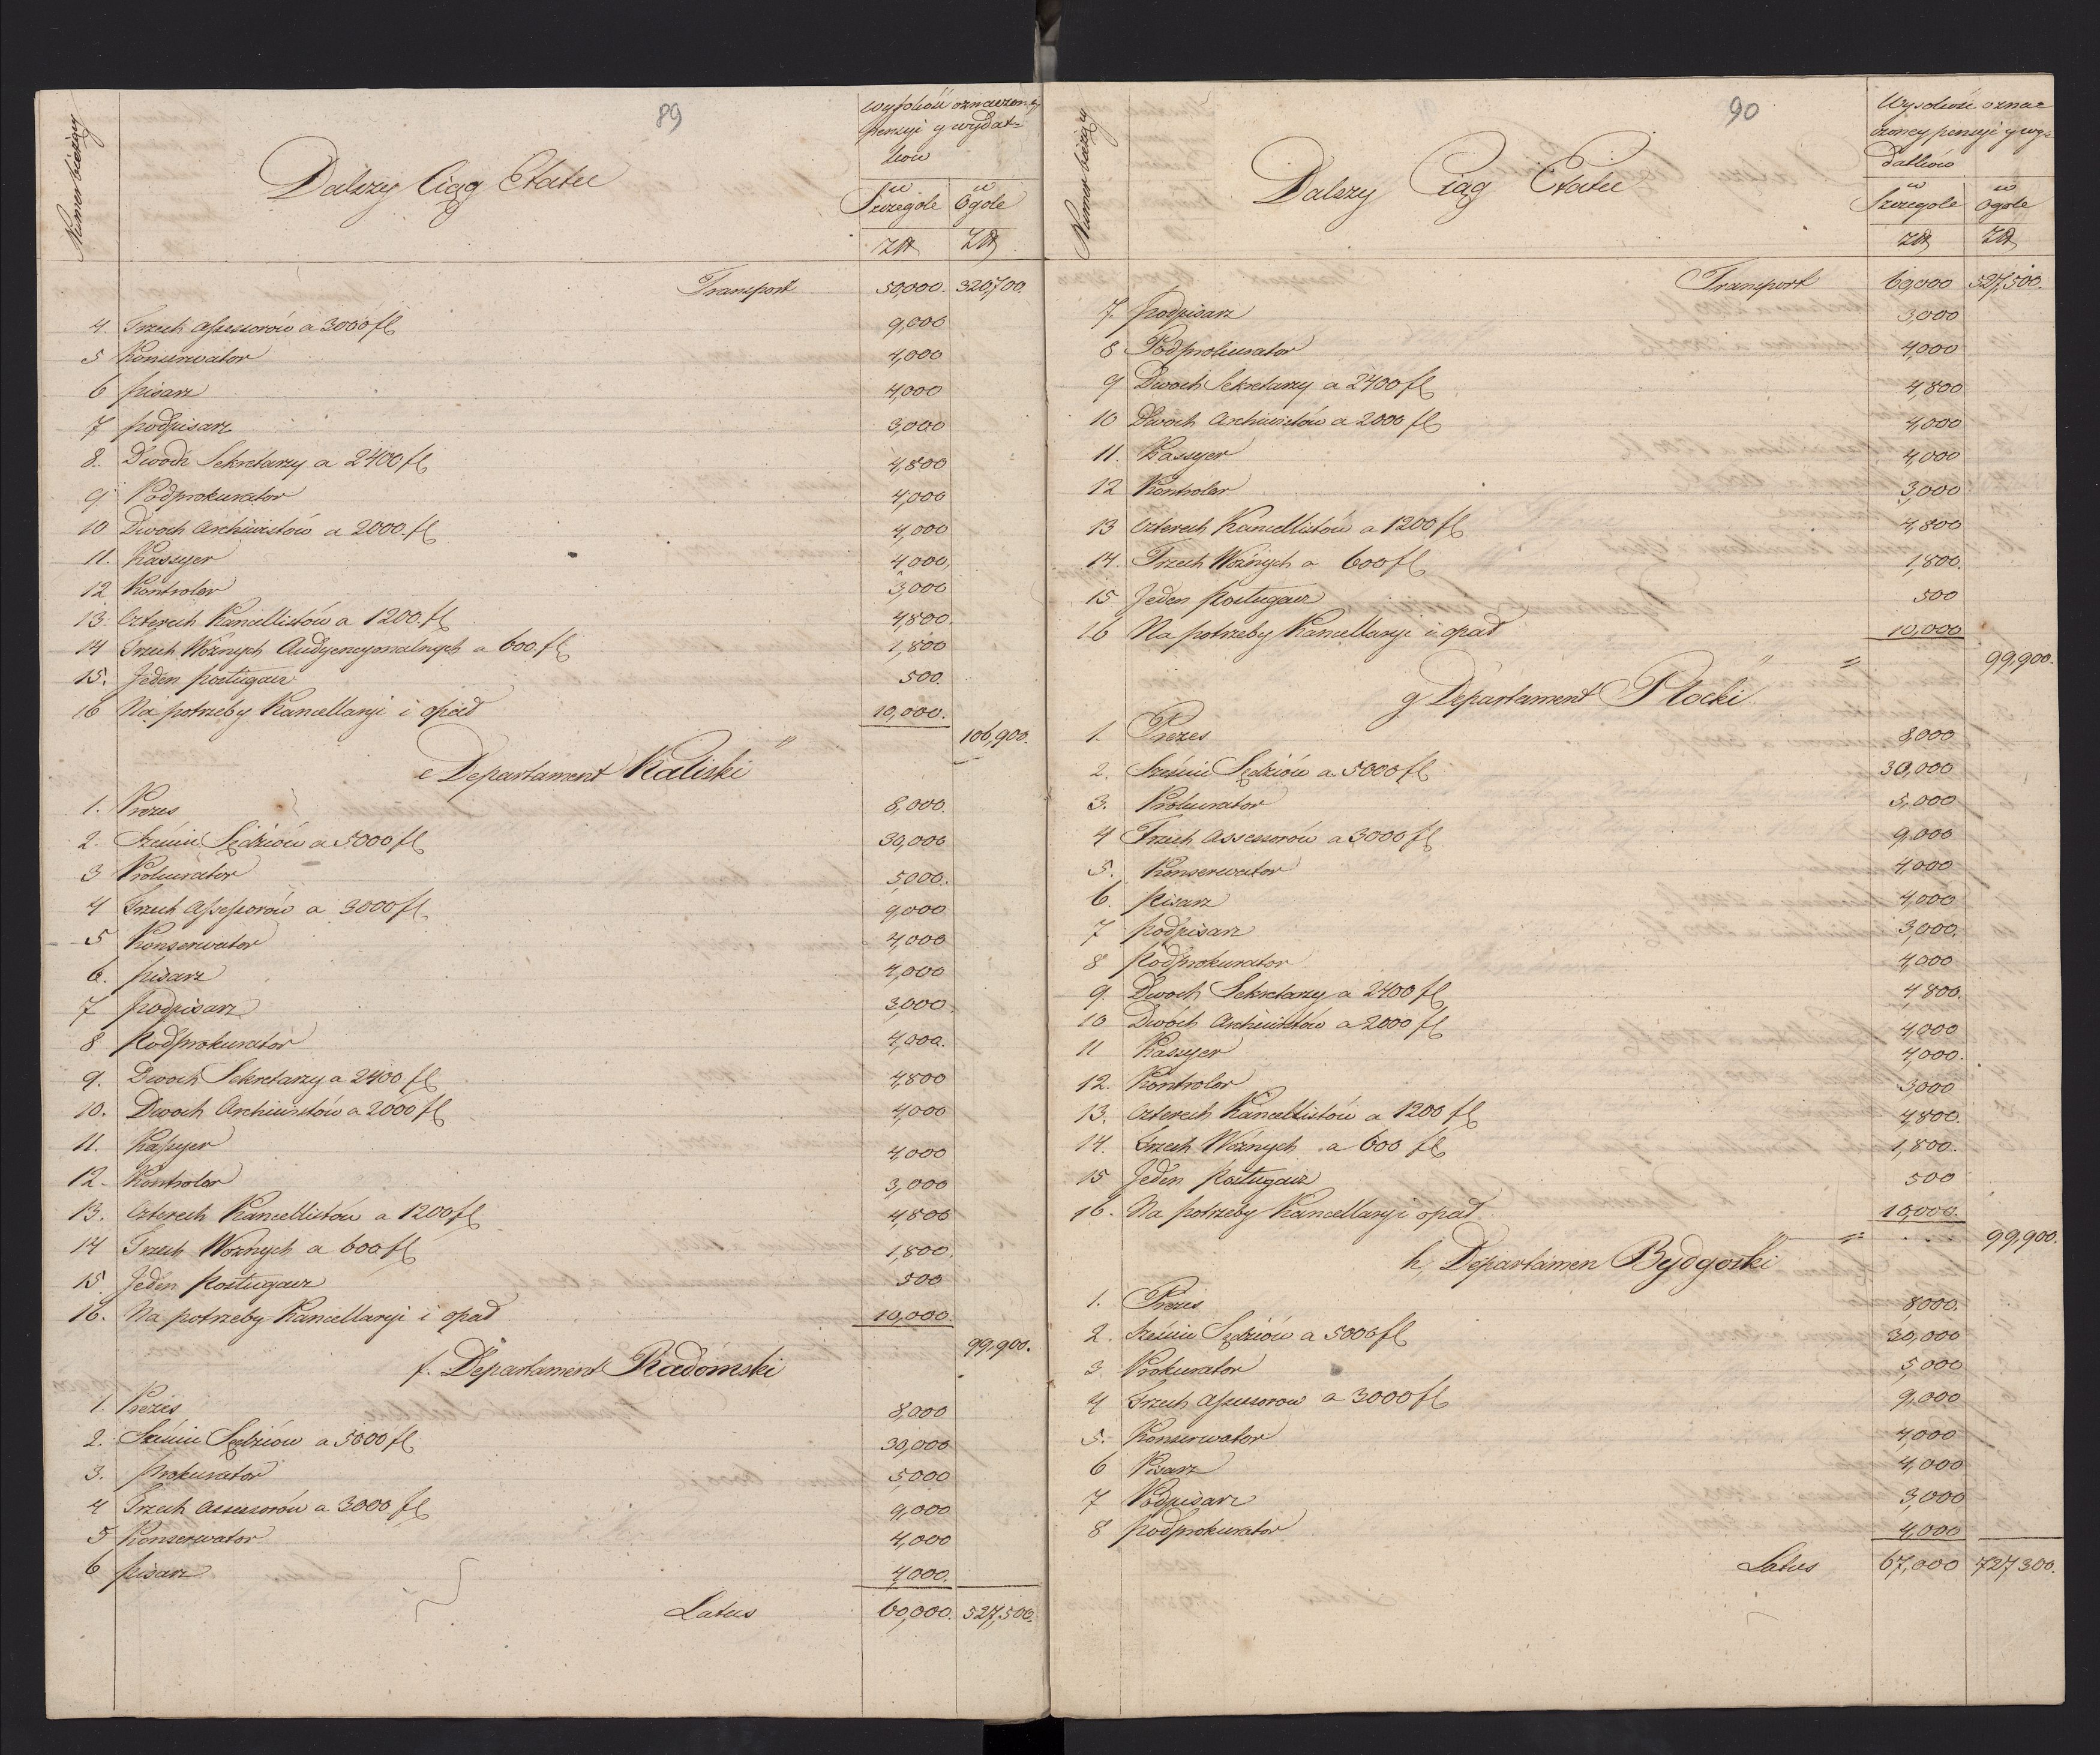 89
Numer bieżący
Dalszy Ciąg Etatu
Wysokość oznaczoney
pensyi y wydat=
ków
w Szczegole w Ogole
Złt Złt
Transport 50,000. 320,700.
4. Trzech assessorów a 3000 fl 9,000
5 Konserwator 4,000
6 pisarz 4,000
7 podpisarz 3,000
8. Dwoch Sekretarzy a 2400 fl 4,800
9 Podprokurator 4,000
10 Dwoch Archiwistów a 2000. fl 4,000
11. Kassyer 4,000
12 Kontroler 3,000
13. Czterech Kancellistów a 1200. fl 4,800
14 Trzech Woźnych Audyencyonalnych a 600. fl 1,800
15. Jeden posługacz 500.
16 Na potrzeby Kancellaryi i opał 10,000.
106,900.
e Departament Kaliski
1. Prezes 8,000.
2. Sześciu Sędziów a 5000 fl 30,000
3 Prokurator 5,000.
4 Trzech assessorów a 3000 fl 9,000
5 Konserwator 4,000
6. pisarz 4,000
7 podpisarz 3,000
8 Podprokurator 4,000.
9. Dwoch Sekretarzy a 2400 fl 4,800
10. Dwoch Archiwistów a 2000 fl 4,000
11. Kassyer 4,000
12. Kontroler 3,000
13. Czterech Kancellistów a 1200 fl 4,800
14 Trzech Woźnych a 600 fl 1,800.
15 Jeden Posługacz 500
16. Na potrzeby Kancellaryi i opał 10,000.
99,900.
f. Departament Radomski
1. Prezes 8,000
2. Sześciu Sędziow a 5000 fl 30,000
3. prokurator 5,000
4 Trzech Assessorów a 3000 fl 9,000
5 Konserwator 4,000
6 pisarz 4,000.
Latus 60,000. 527,500.
90
Numer bieżący
Dalszy Ciąg Etatu
Wysokość oznac
zoney pensyi y wy=
datków
w Szczegole w Ogole
Złt Złt
Transport 60,000 527,500.
7. podpisarz 3,000
8 Podprokurator 4,000
9 Dwoch Sekretarzy a 2400 fl 4,800
10 Dwoch Archiwistów a 2000 fl 4,000
11. Kassyer 4,000
12 Kontroler 3,000
13 Czterech Kancellistów a 1200 fl 4,800
14. Trzech Woźnych a 600 fl 1,800.
15 Jeden Posługacz 500
16 Na potrzeby Kancellaryi i opał 10,000
99,900.
g Departament Płocki
1. Prezes 8,000
2. Sześciu Sędziów a 5000 fl 30,000
3. Prokurator 5,000
4 Trzech Assessorów a 3000 fl 9,000
5. Konserwator 4,000
6. Pisarz 4,000
7 podpisarz 3,000.
8 Podprokurator 4,000
9. Dwoch Sekretarzy a 2400 fl 4 800.
10 Dwóch Archiwistów a 2000 fl 4,000
11 Kassyer 4,000.
12. Kontroler 3,000
13. Czterech Kancellistów a 1200 fl 4,800.
14. Trzech Woźnych a 600 fl 1,800.
15 Jeden Posługacz 500
16. Na potrzeby Kancellaryi opał 10,000.
99,900.
h, Departamen Bydgoski
1. Prezes 8000.
2. Sześciu Sędziów a 5000 fl 30,000
3 Prokurator 5,000
4 Trzech assessorow a 3000 fl 9,000
5. Konserwator 4,000
6 Pisarz 4,000
7 Podpisarz 3,000
8 podprokurator 4,000
Latus 67,000 727,300.